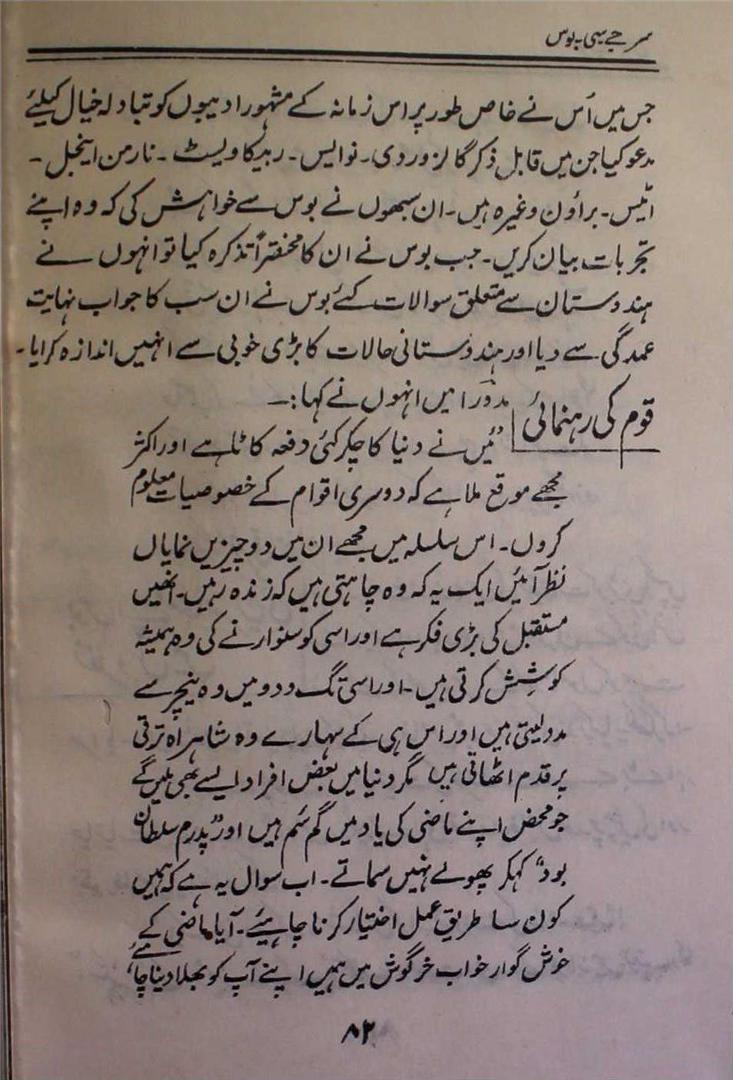 سر جے سی بوس
جس میں اُس نے خاص طور پر اس زمانہ کے مشہور ادیبوں کو تبادلہ خیال کیلئے
مدعو کیا جن میں قابل ذکر گالزوردی۔ نوایس۔ ربیکا ویسٹ۔ نارمن اینجل۔
ایٹس۔ براؤن وغیرہ ہیں۔ ان سبھوں نے بوس سے خواہش کی کہ وہ اپنے
تجربات بیان کریں۔ جب بوس نے ان کا مختصراً تذکرہ کیا تو انہوں نے
ہندوستان سے متعلق سوالات کئے بوس نے ان سب کا جواب نہایت
عمدگی سے دیا اور ہندوستانی حالات کا بڑی خوبی سے انہیں اندازہ کرایا۔
قوم کی رہنمائی
مدورا میں انہوں نے کہا:۔
"میں نے دنیا کا چکر کئی دفعہ کاٹا ہے اور اکثر
مجھے موقع ملا ہے کہ دوسری اقوام کے خصوصیات معلوم
کروں۔ اس سلسلہ میں مجھے ان میں دو چیزیں نمایاں
نظر آئیں ایک یہ کہ وہ چاہتی ہیں کہ زندہ رہیں۔ انھیں
مستقبل کی بڑی فکر ہے اور اسی کو سنوارنے کی وہ ہمیشہ
کوشش کرتی ہیں۔ اور اسی تگ و دو میں وہ نیچر سے
مدد لیتی ہیں اور اس ہی کے سہارے وہ شاہراہ ترقی
پر قدم اٹھاتی ہیں مگر دنیا میں بعض افراد ایسے بھی ملیں گے
جو محض اپنے ماضی کی یاد میں گم سُم ہیں اور "پدرم سلطان
بود" کہکر پھولے نہیں سماتے۔ اب سوال یہ ہے کہ ہمیں
کون سا طریق عمل اختیار کرنا چاہیئے۔ آیا ماضی کے
خوش گوار خواب خرگوش میں ہمیں اپنے آپ کو بھلا دینا چاہیئے
۸۲